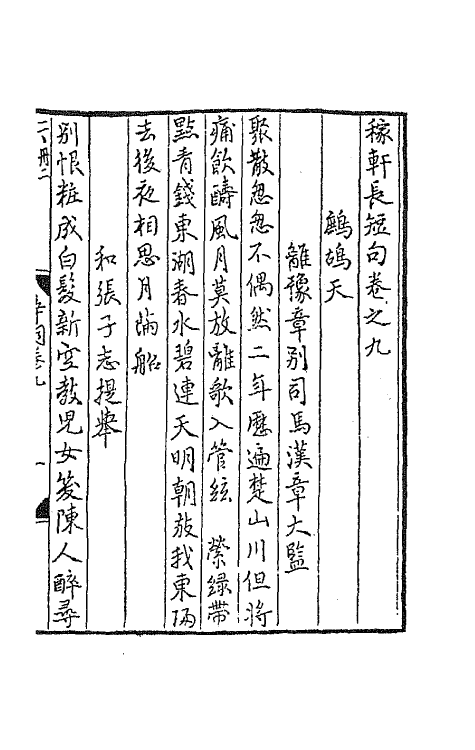 稼軒長短句卷之九
鷓鴣天
離豫章別司馬漢章大監
聚散怱怱不偶然二年歷遍楚山川但將
痛飲酬風月莫放離歌入管絃　縈綠帶
點青錢東湖春水碧連天明朝放我東歸
去後夜相思月滿船
和張子志提舉
別恨粧成白髮新空教兒女笑陳人醉尋